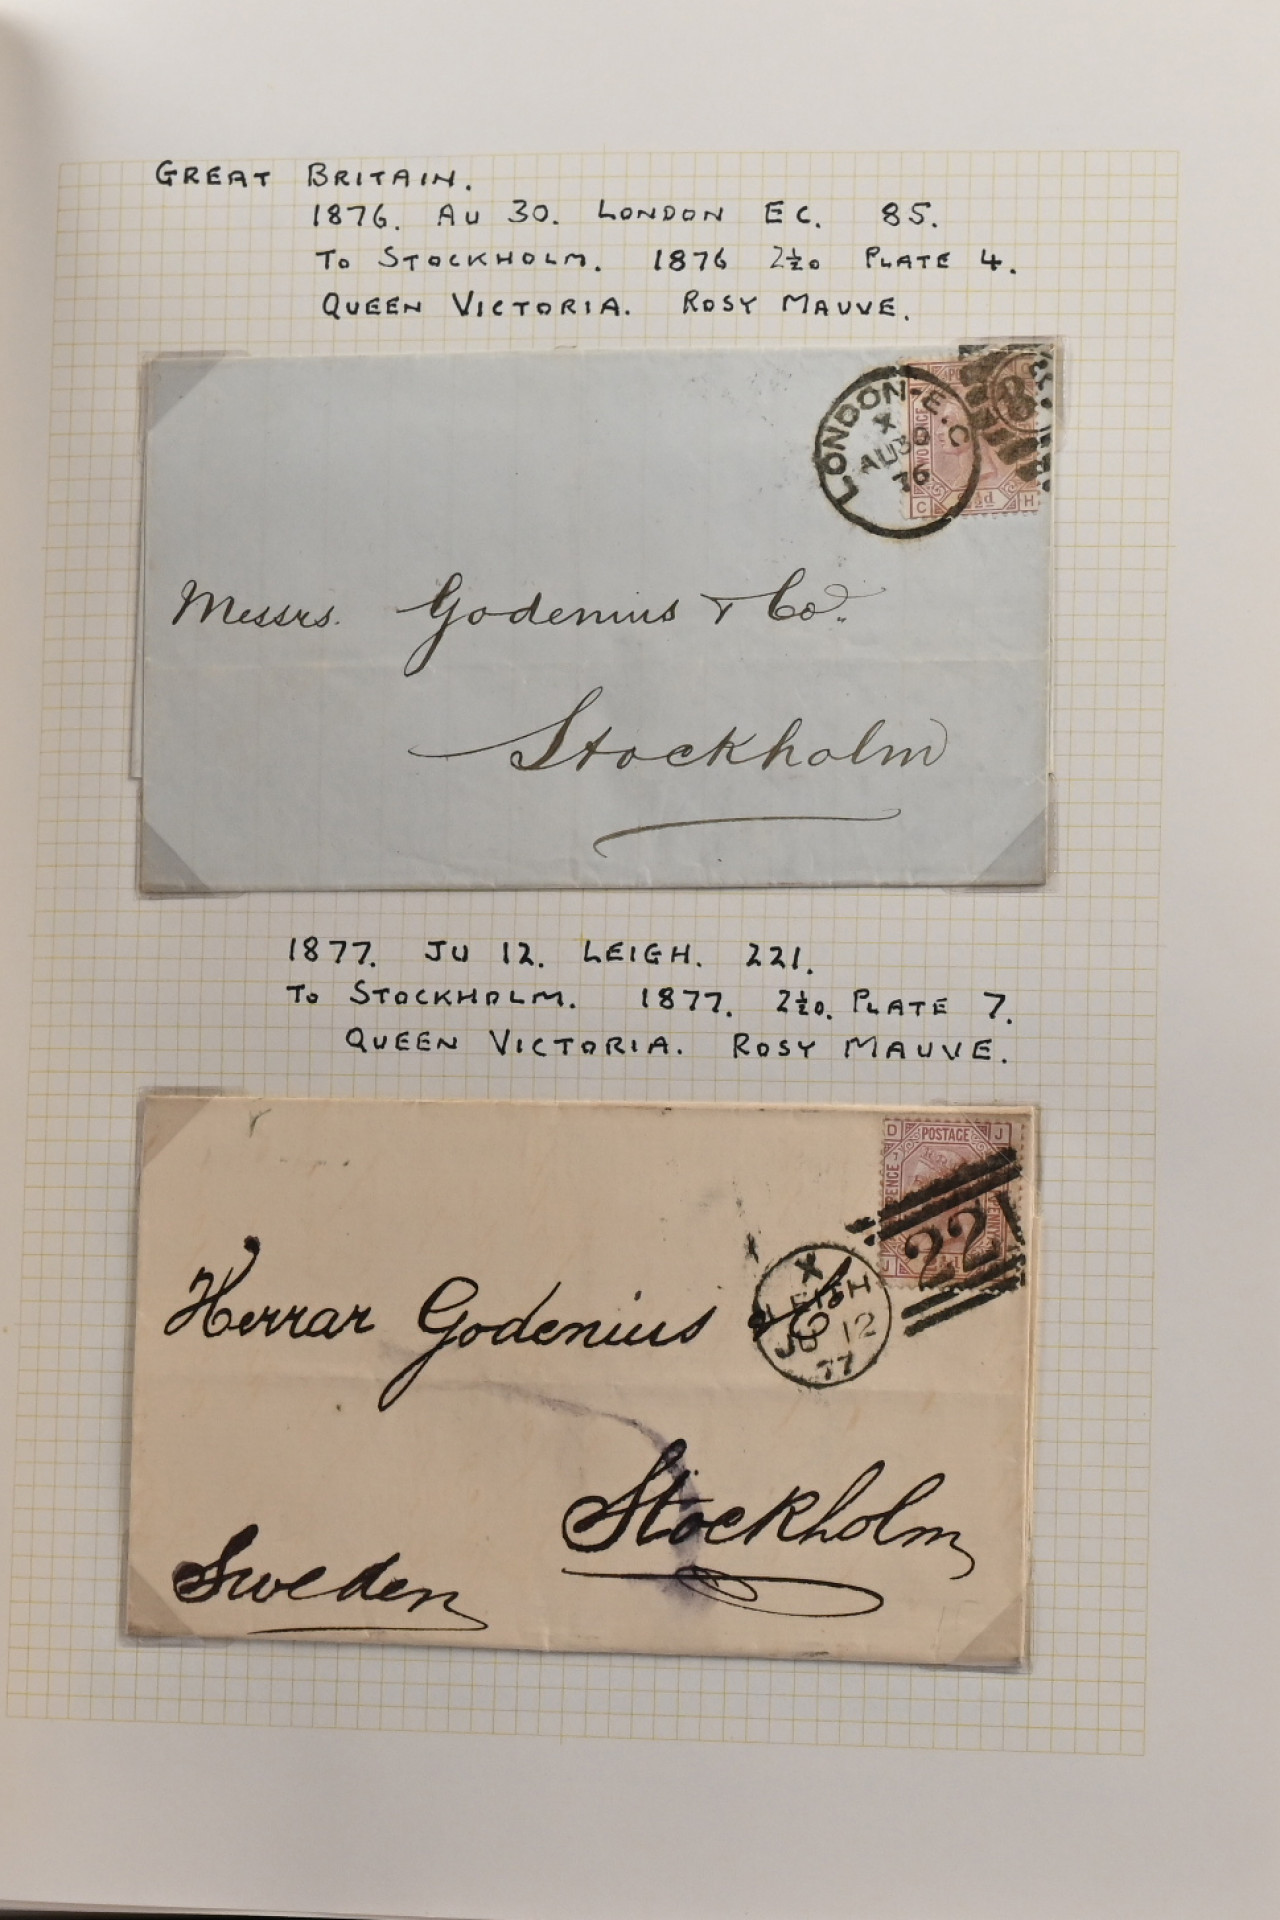 GREAT BRITAIN.
1876. AU 30. LONDON EC. 85.
TO STOCKHOLM. 1876 2½D PLATE 4.
QUEEN VICTORIA. ROSY MAUVE.
LONDON·E.C
X
AU 30
76
TWO PENCE
C 2½d H
Messrs. Godenius & Co.
Stockholm
1877. JU 12. LEIGH. 221.
TO STOCKHOLM. 1877. 2½D. PLATE 7.
QUEEN VICTORIA. ROSY MAUVE.
D POSTAGE J
PENCE
22
X
LEIGH
JU 12
77
Herrar Godenius & Co
Stockholm
Sweden